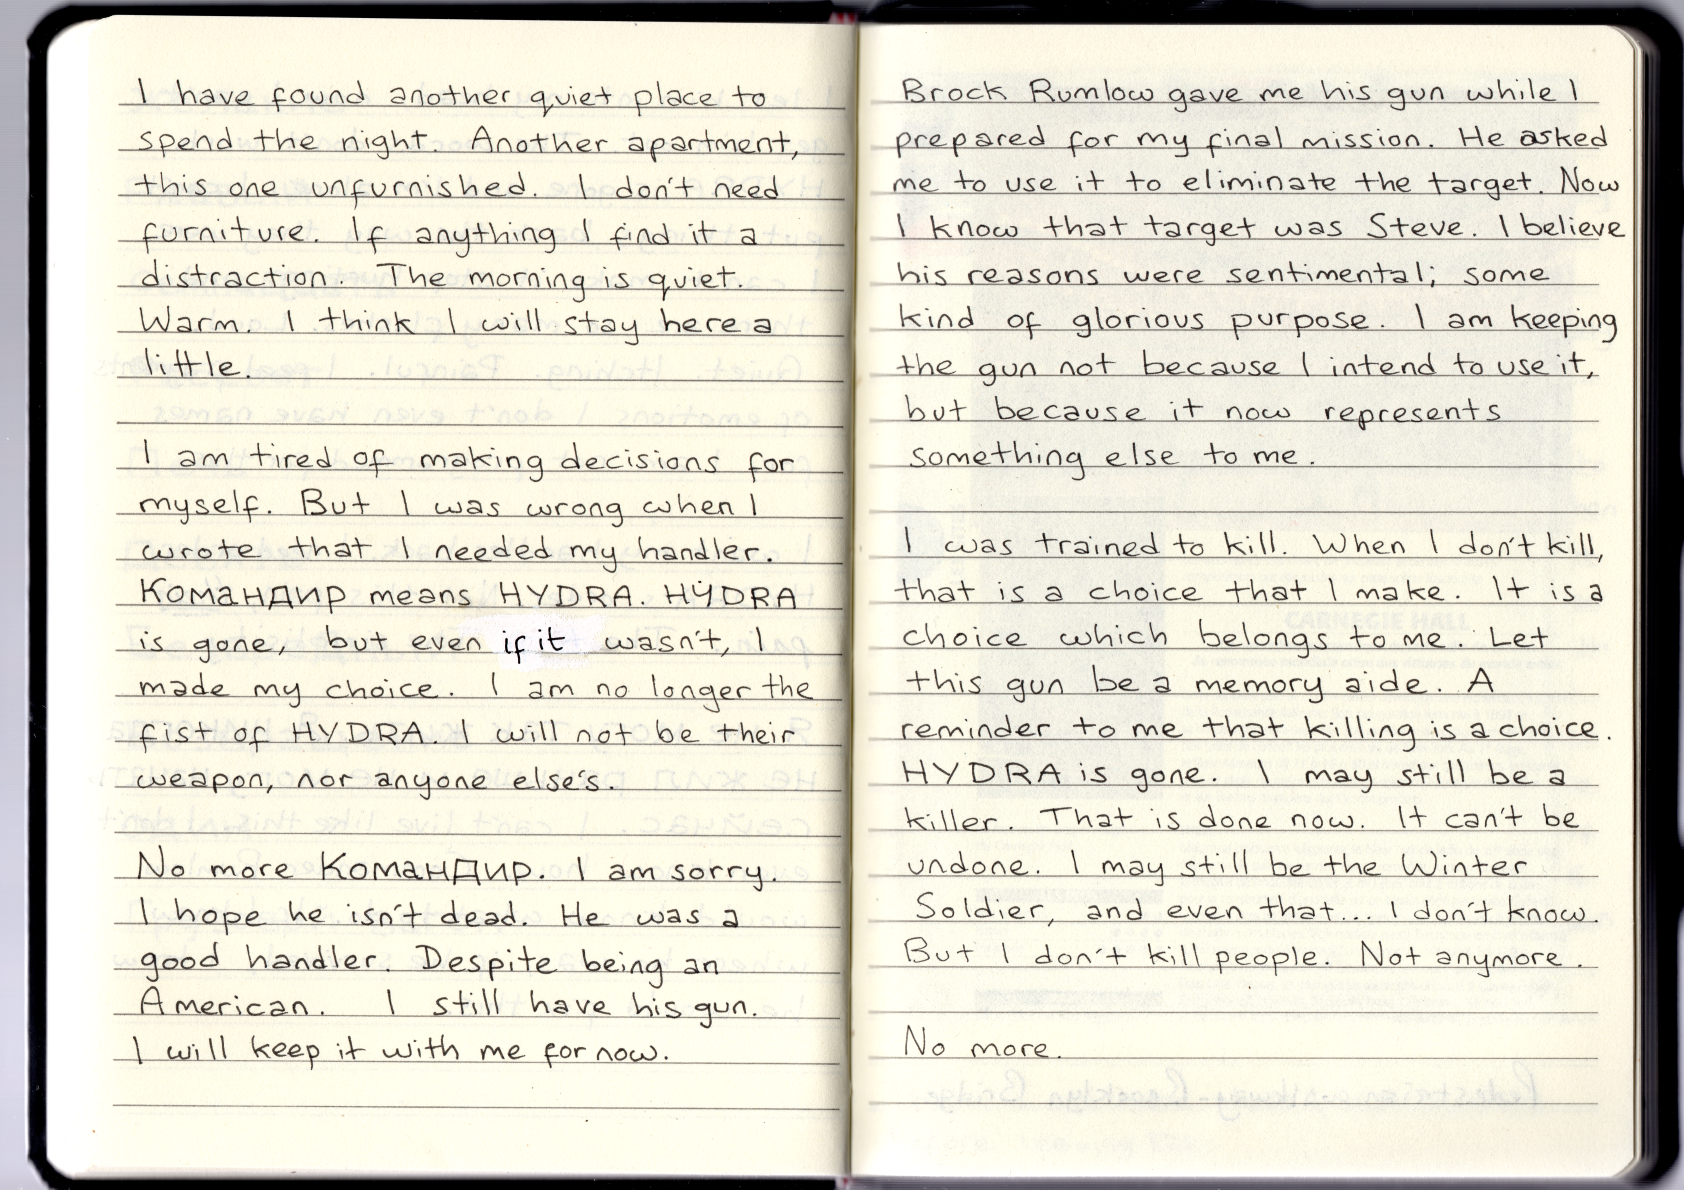 I have found another quiet place to
spend the night. Another apartment,
this one unfurnished. I don't need
furniture. If anything I find it a
distraction. The morning is quiet.
Warm. I think I will stay here a
little.
I am tired of making decisions for
myself. But I was wrong when I
wrote that I needed my handler.
Командир means HYDRA. HYDRA
is gone, but even if it wasn't, I
made my choice. I am no longer the
fist of HYDRA. I will not be their
weapon, nor anyone else's.
No more Командир. I am sorry.
I hope he isn't dead. He was a
good handler. Despite being an
American. I still have his gun.
I will keep it with me for now.
Brock Rumlow gave me his gun while I
prepared for my final mission. He asked
me to use it to eliminate the target. Now
I know that target was Steve. I believe
his reasons were sentimental; some
kind of glorious purpose. I am keeping
the gun not because I intend to use it,
but because it now represents
something else to me.
I was trained to kill. When I don't kill,
that is a choice that I make. It is a
choice which belongs to me. Let
this gun be a memory aide. A
reminder to me that killing is a choice.
HYDRA is gone. I may still be a
killer. That is done now. It can't be
undone. I may still be the Winter
Soldier, and even that... I don't know.
But I don't kill people. Not anymore.
No more.
CARNEGIE HALL
Pedestrian walkway - Brooklyn Bridge